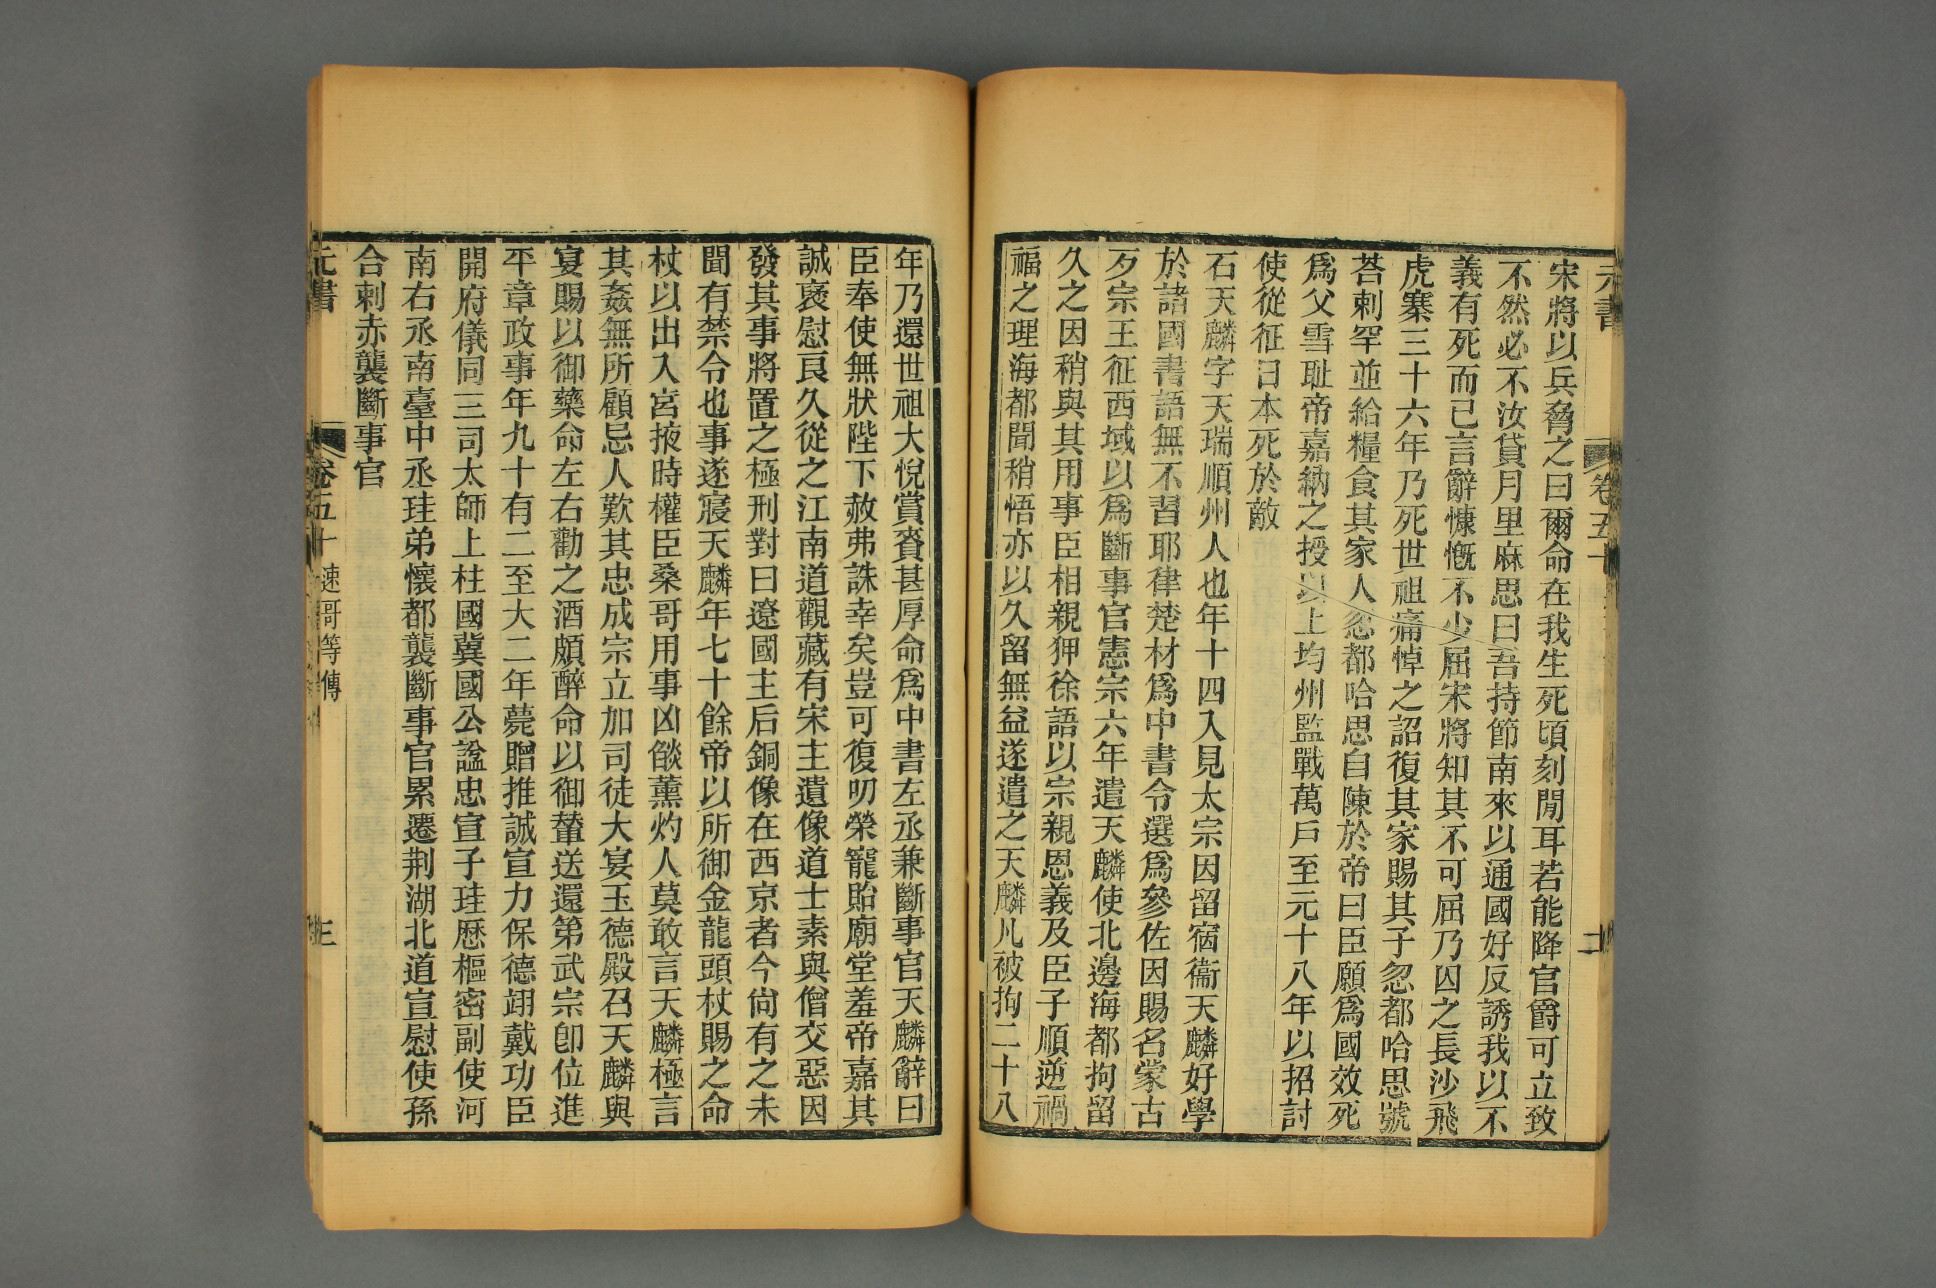 元書
卷五十
二
宋將以兵脅之曰爾命在我生死頃刻閒耳若能降官爵可立致
不然必不汝貸月里麻思曰吾持節南來以通國好反誘我以不
義有死而已言辭慷慨不少屈宋將知其不可屈乃囚之長沙飛
虎寨三十六年乃死世祖痛悼之詔復其家賜其子忽都哈思號
荅剌罕並給糧食其家人忽都哈思自陳於帝曰臣願爲國效死
爲父雪耻帝嘉納之授以上均州監戰萬戶至元十八年以招討
使從征日本死於敵
石天麟字天瑞順州人也年十四入見太宗因留宿衞天麟好學
於諸國書語無不習耶律楚材爲中書令選爲參佐因賜名蒙古
歹宗王征西域以爲斷事官憲宗六年遣天麟使北邊海都拘留
久之因稍與其用事臣相親狎徐語以宗親恩義及臣子順逆禍
福之理海都聞稍悟亦以久留無益遂遣之天麟凡被拘二十八
年乃還世祖大悅賞賚甚厚命爲中書左丞兼斷事官天麟辭曰
臣奉使無狀陛下赦弗誅幸矣豈可復叨榮寵貽廟堂羞帝嘉其
誠褒慰良久從之江南道觀藏有宋主遺像道士素與僧交惡因
發其事將置之極刑對曰遼國主后銅像在西京者今尙有之未
聞有禁令也事遂寢天麟年七十餘帝以所御金龍頭杖賜之命
杖以出入宮掖時權臣桑哥用事凶燄薰灼人莫敢言天麟極言
其姦無所顧忌人歎其忠成宗立加司徒大宴玉德殿召天麟與
宴賜以御藥命左右勸之酒頗醉命以御輦送還第武宗卽位進
平章政事年九十有二至大二年薨贈推誠宣力保德翊戴功臣
開府儀同三司太師上柱國冀國公諡忠宣子珪歷樞密副使河
南右丞南臺中丞珪弟懷都襲斷事官累遷荆湖北道宣慰使孫
合剌赤襲斷事官
元書
卷五十
速哥等傳
三